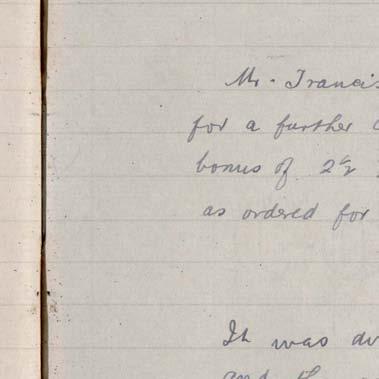 Mr. Francis
for a further
bonus of 2½
as ordered for
It was
and